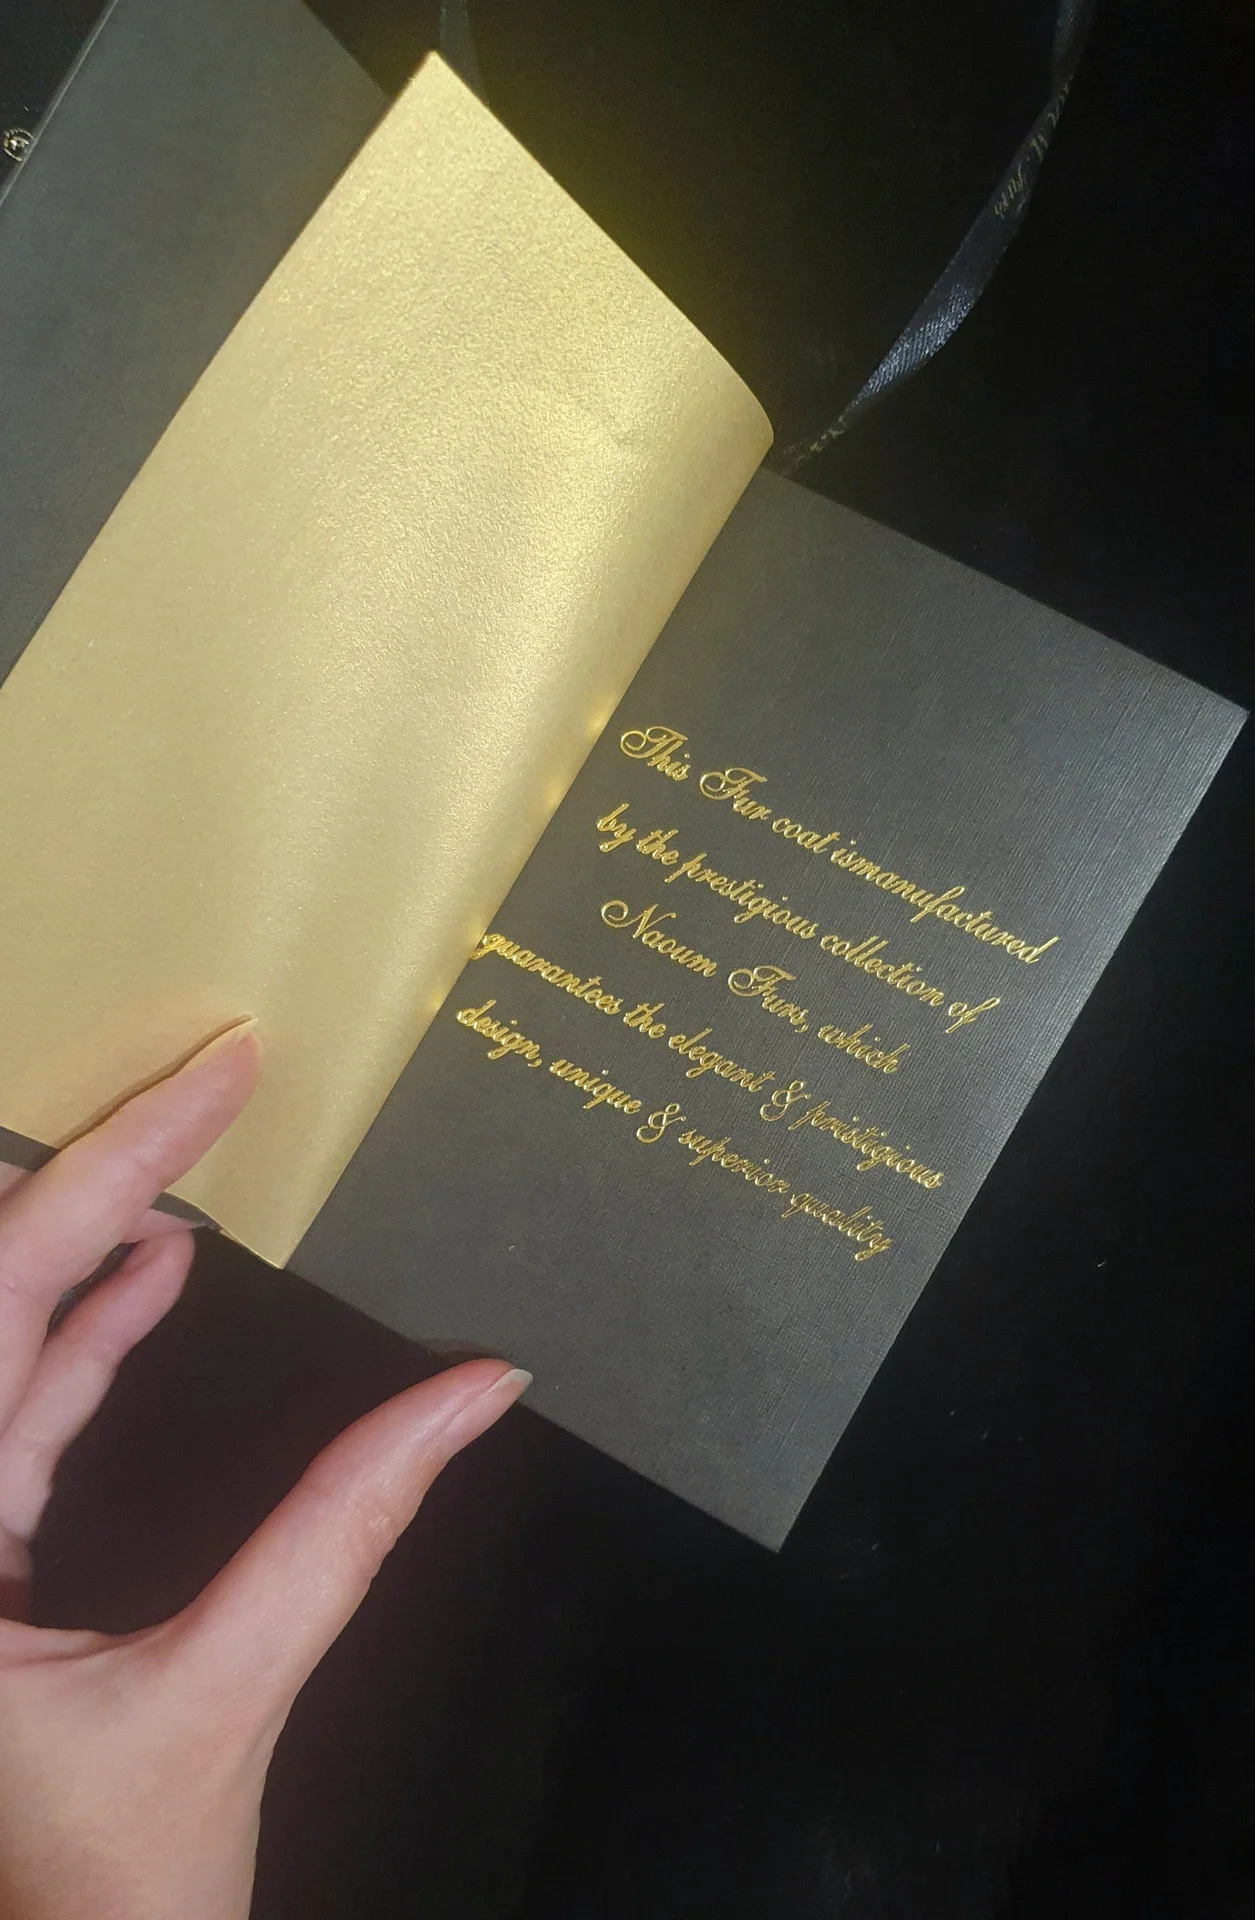 This Fur coat ismanufactured
by the prestigious collection of
Naoum Furs, which
guarantees the elegant & pristigious
design, unique & superior quality
Furs